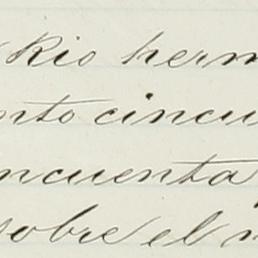 Rio herm
nto cincu
ncuenta
sobre el n